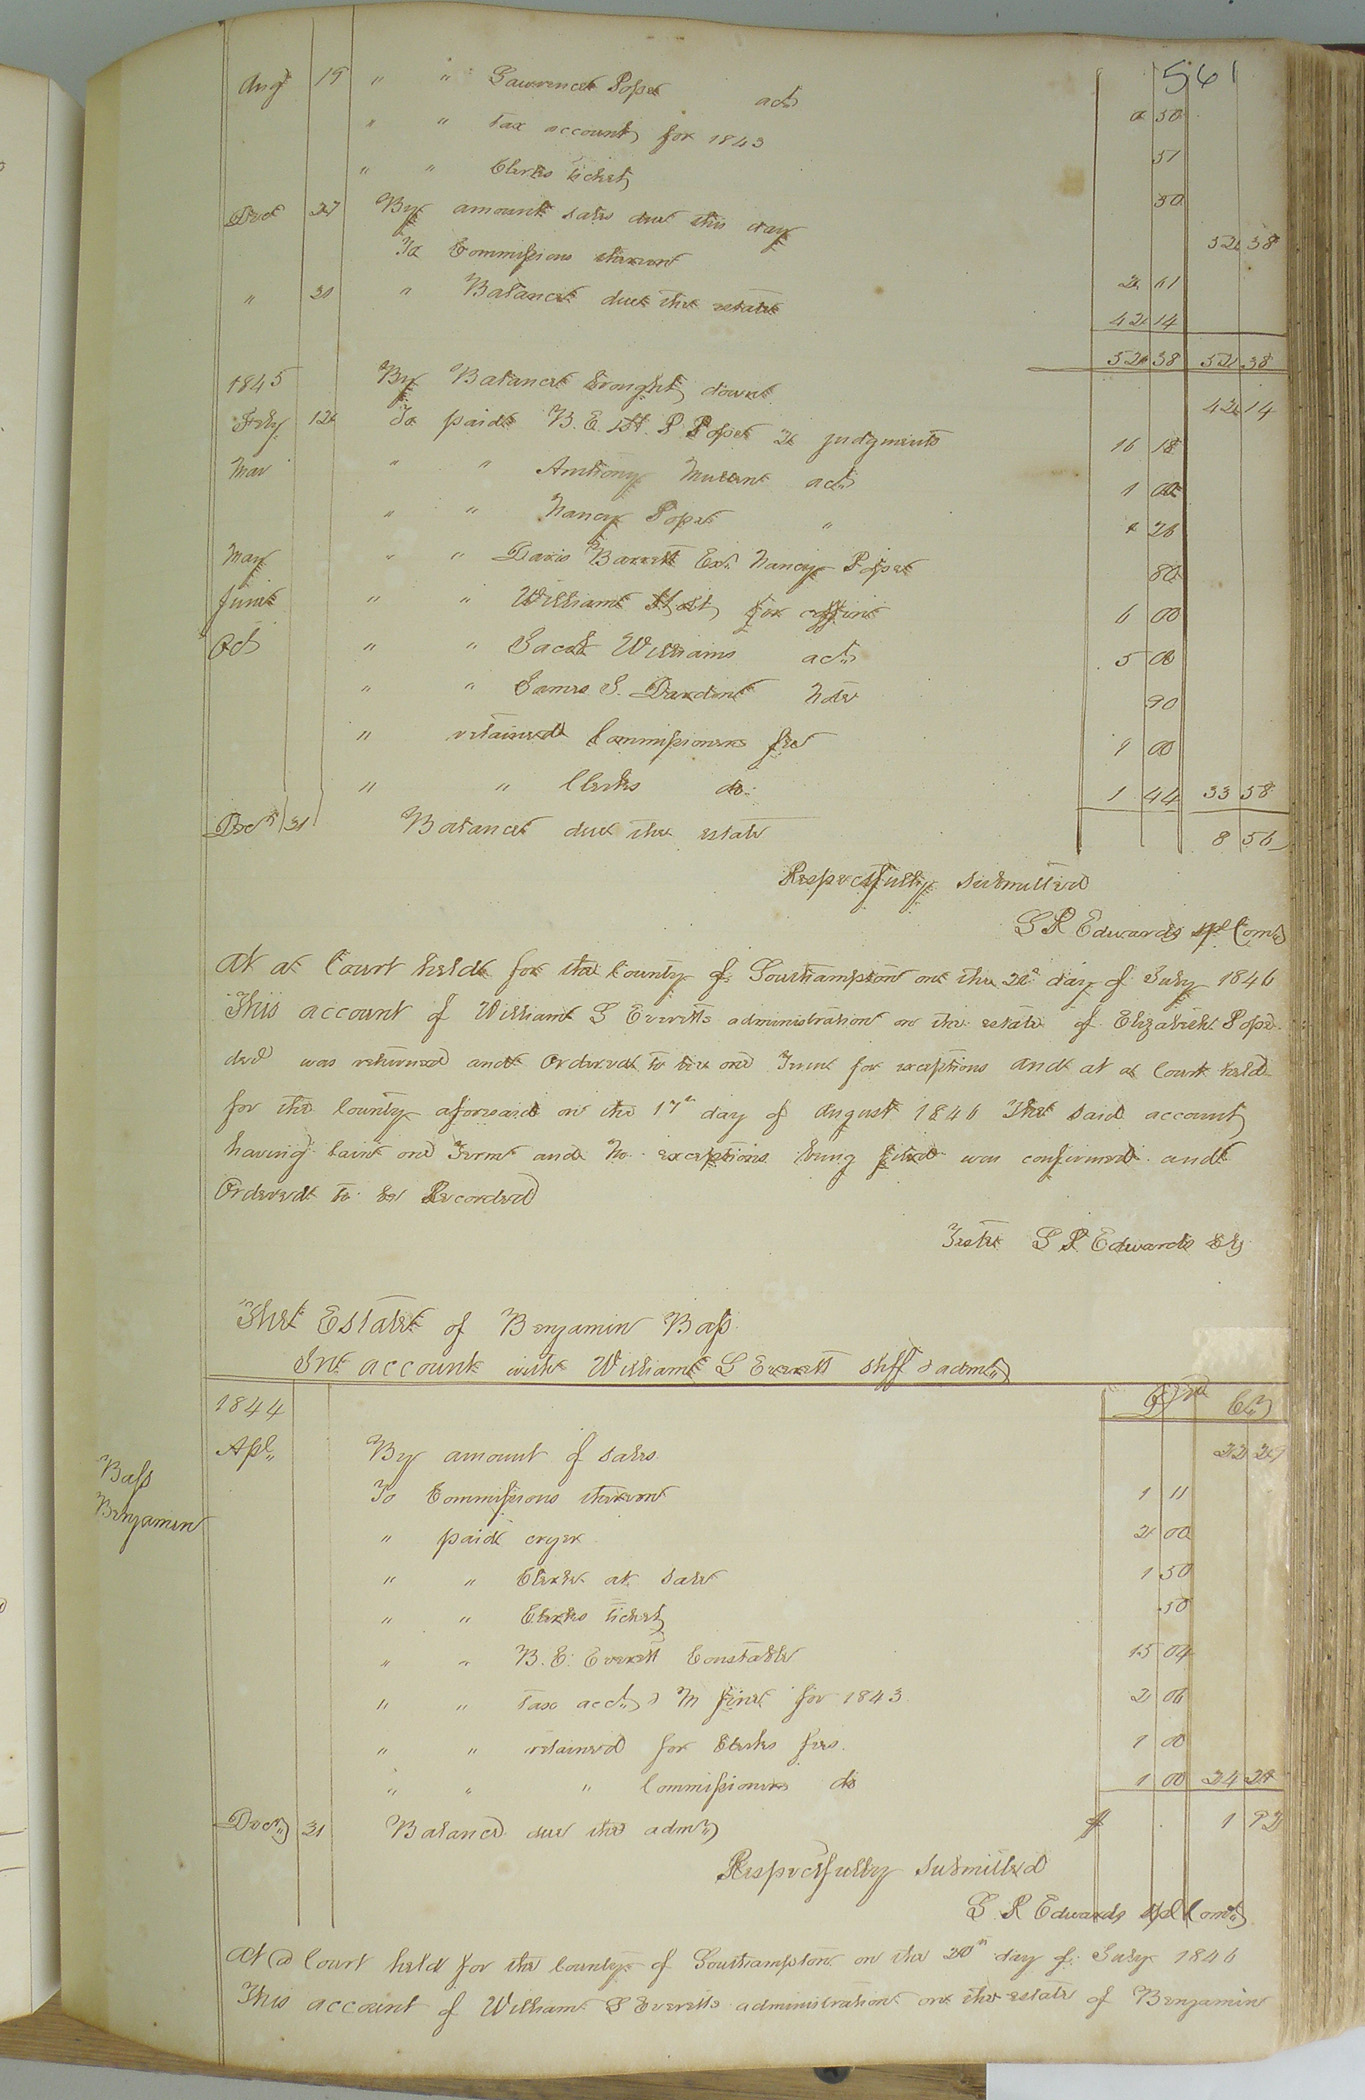 561
Augt 19 " " Lawrence Pope act 2 50
" " Tax account for 1843 51
" " Clerks ticket 50
Decr 27 By amount sales due this day 52 38
To Commissions thereon 2 61
" 31 " Balance due the estate 42 14
52 38 52 38
1845 By Balance brought down 42 14
Feby 12 To paid B. E. & P Pope 2 judgments 16 18
Mar " " Anthony act 1 00
" " Nancy Pope " 26
May " " Davis Barrett Exr Nancy Pope 80
June " " William Holt for coffin 6 00
Oct " " Jacob Williams act 5 00
" " James S. Darden note 90
" retained Commissioners fee 1 00
" " Clerks do. 1 44 33 58
Decr 31 Balance due the estate 8 56
Respectfully submitted
L R Edwards spl Comr
At a Court held for the County of Southampton on the day of July 1846
This account of William L Everetts administration on the estate of Elizabeth Pope
decd was returned and Ordered to lie one Term for exceptions and at a Court held
for the County aforesaid on the 17th day of August 1846 The said account
having lain one Term and no exceptions being filed was confirmed and
Ordered to be Recorded
Teste L R Edwards Clk
The Estate of Benjamin Bass
In account with William L Everett shff & admr
1844 Dr Cr
Bass
Benjamin
Apl By amount of sales 22 29
To Commissions thereon 1 11
" paid cryer 2 00
" " Clerk at sale 1 50
" " Clerks ticket 50
" " B. E. Everett Constable 15 04
" " Tax act & M fine for 1843 2 06
" " retained for Clerks fees 1 00
" " " Commissioners do 1 00 24 21
Decr 31 Balance due the admr $ 1 92
Respectfully submitted
L R Edwards spl Comr
At a Court held for the County of Southampton on the 20th day of July 1846
This account of William L Everetts administration on the estate of Benjamin